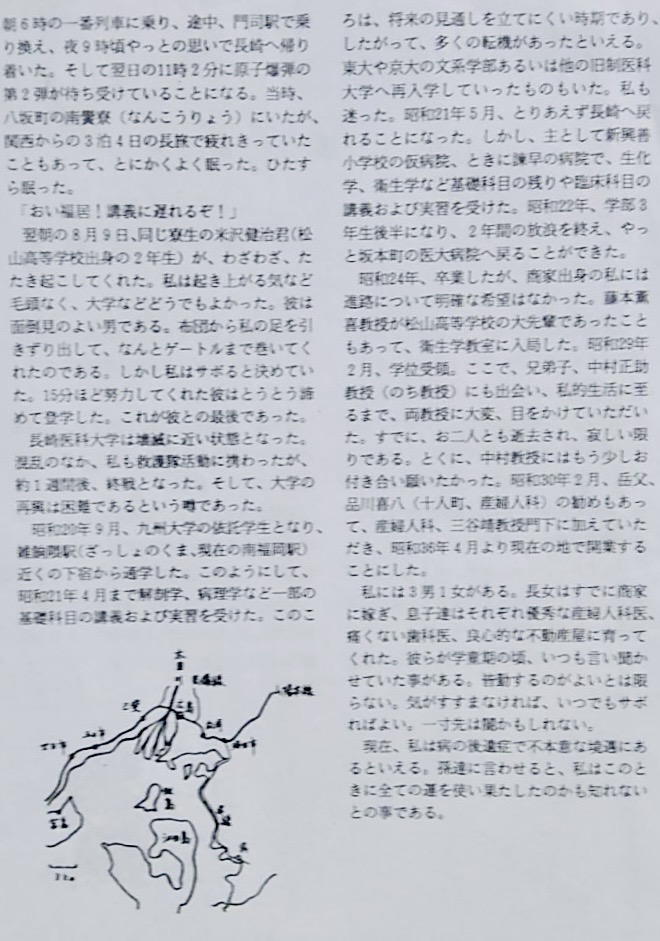 朝6時の一番列車に乗り、途中、門司駅で乗
り換え、夜9時頃やっとの思いで長崎へ帰り
着いた。そして翌日の11時2分に原子爆弾の
第2弾が待ち受けていることになる。当時、
八坂町の南甖寮（なんこうりょう）にいたが、
関西からの3泊4日の長旅で疲れきっていた
こともあって、とにかくよく眠った。ひたす
ら眠った。
「おい福居！講義に遅れるぞ！」
翌朝の8月9日、同じ寮生の米沢健治君（松
山高等学校出身の2年生）が、わざわざ、た
たき起こしてくれた。私は起き上がる気など
毛頭なく、大学などどうでもよかった。彼は
面倒見のよい男である。布団から私の足を引
きずり出して、なんとゲートルまで巻いてく
れたのである。しかし私はサボると決めてい
た。15分ほど努力してくれた彼はとうとう諦
めて登学した。これが彼との最後であった。
長崎医科大学は壊滅に近い状態となった。
混乱のなか、私も救護隊活動に携わったが、
約1週間後、終戦となった。そして、大学の
再興は困難であるという噂であった。
昭和20年9月、九州大学の依託学生となり、
雑餉隈駅（ざっしょのくま、現在の南福岡駅）
近くの下宿から通学した。このようにして、
昭和21年4月まで解剖学、病理学など一部の
基礎科目の講義および実習を受けた。このこ
ろは、将来の見通しを立てにくい時期であり、
したがって、多くの転機があったといえる。
東大や京大の文系学部あるいは他の旧制医科
大学へ再入学していったものもいた。私も
迷った。昭和21年5月、とりあえず長崎へ戻
れることになった。しかし、主として新興善
小学校の仮病院、ときに諫早の病院で、生化
学、衛生学など基礎科目の残りや臨床科目の
講義および実習を受けた。昭和22年、学部3
年生後半になり、2年間の放浪を終え、やっ
と坂本町の医大病院へ戻ることができた。
昭和24年、卒業したが、商家出身の私には
進路について明確な希望はなかった。藤本薫
喜教授が松山高等学校の大先輩であったこと
もあって、衛生学教室に入局した。昭和29年
2月、学位受領。ここで、兄弟子、中村正助
教授（のち教授）にも出会い、私的生活に至
るまで、両教授に大変、目をかけていただい
た。すでに、お二人とも逝去され、寂しい限
りである。とくに、中村教授にはもう少しお
付き合い願いたかった。昭和30年2月、岳父、
品川喜八（十人町、産婦人科）の勧めもあっ
て、産婦人科、三谷靖教授門下に加えていた
だき、昭和36年4月より現在の地で開業する
ことにした。
私には3男1女がある。長女はすでに商家
に嫁ぎ、息子達はそれぞれ優秀な産婦人科医、
痛くない歯科医、良心的な不動産屋に育って
くれた。彼らが学童期の頃、いつも言い聞か
せていた事がある。皆勤するのがよいとは限
らない。気がすすまなければ、いつでもサボ
ればよい。一寸先は闇かもしれない。
現在、私は病の後遺症で不本意な境遇にあ
るといえる。孫達に言わせると、私はこのと
きに全ての運を使い果たしたのかも知れない
との事である。
太田川
広島
江田島